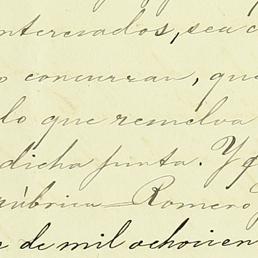 interesados, sea c
o concurran, que
lo que resuelva
dicha junta. Y q
rúbrica = Romero
s de mil ochocien